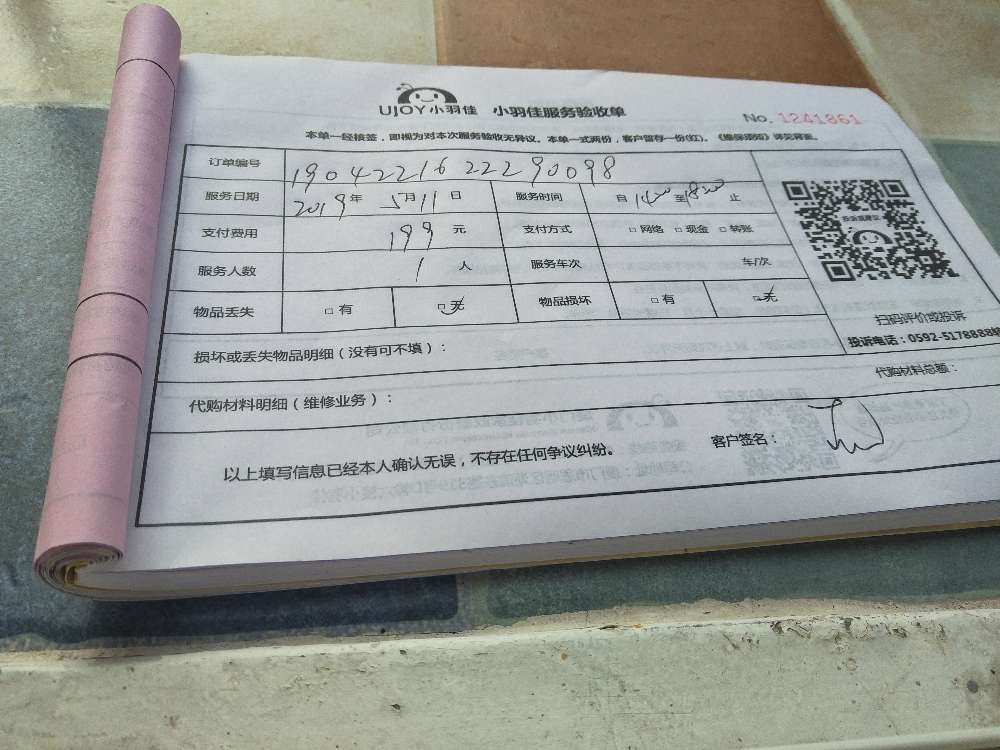 UJOY小羽佳 小羽佳服务验收单
No. 1241861
本单一经核签，即视为对本次服务验收无异议。本单一式两份，客户留存一份(红)。《维保须知》详见背面。
订单编号 1904221622290098
服务日期 2019年 5月11日 服务时间 自 14:00 至 18:00 止
支付费用 199 元 支付方式 □ 网络 □ 现金 □ 转账
服务人数 1 人 服务车次 车/次
物品丢失 □ 有 □ 无 物品损坏 □ 有 □ 无
投诉或建议
扫码评价或投诉
投诉电话：0592-5178888转
损坏或丢失物品明细（没有可不填）：
代购材料明细（维修业务）：
代购材料总额：
以上填写信息已经本人确认无误，不存在任何争议纠纷。 客户签名：